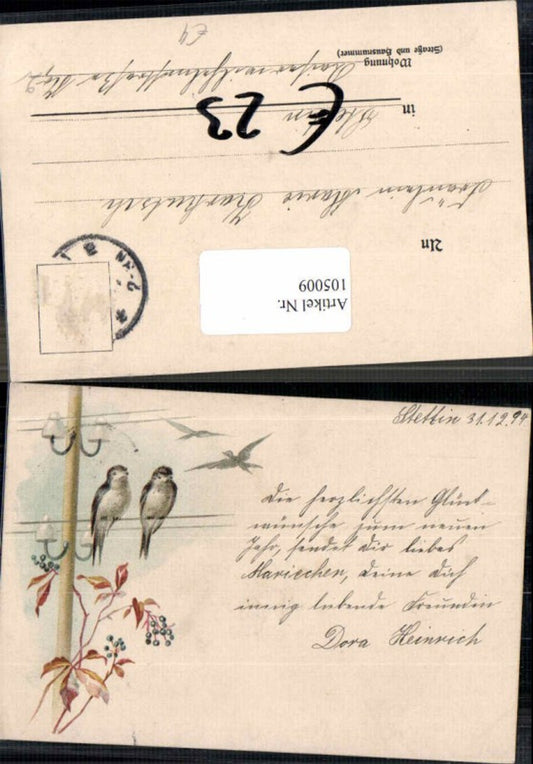 An
Fräulein Marie Karkutsch
in Stettin
Wohnung
(Straße und Hausnummer)
€ 23
€4
Artikel Nr.
105009
Stettin 31.12.94
Die herzlichsten Glück-
wünsche zum neuen
Jahr, sendet dir liebes
Mariechen, deine dich
innig liebende Freundin
Dora Heinrich